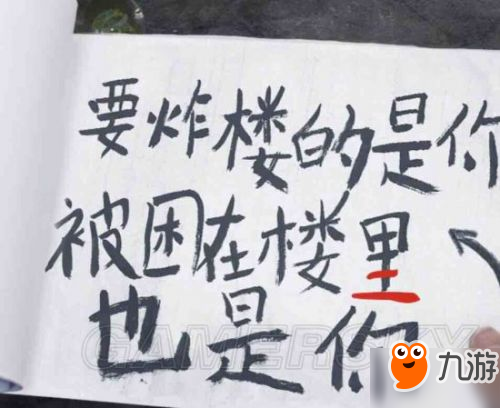 要炸楼的是你
被困在楼里
也是你
GAMERSKY
九游